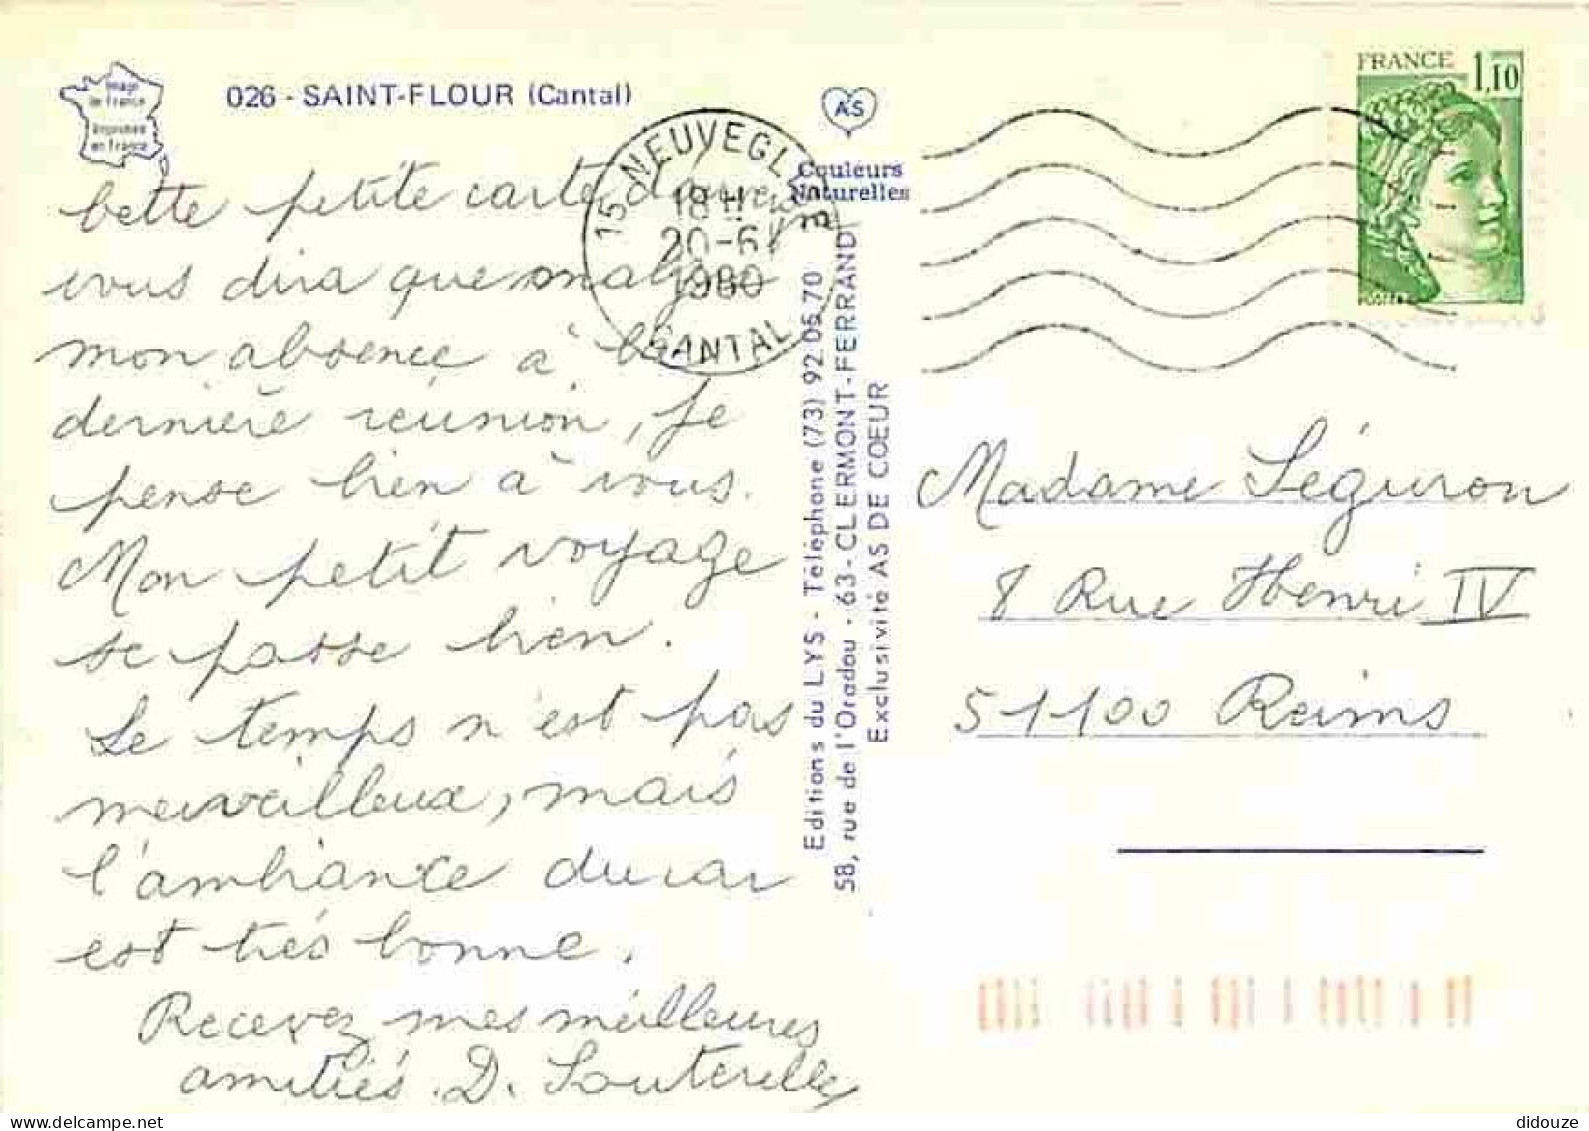 Image
de France
Imprimée
en France
026 - SAINT-FLOUR (Cantal)
AS
Couleurs
Naturelles
15 NEUVEGLISE
18 H
20-6
1980
CANTAL
FRANCE 1,10
Cette petite carte d'Auvergne
vous dira que malgré
mon absence à la
dernière réunion, je
pense bien à vous.
Mon petit voyage
se passe bien.
Le temps n'est pas
merveilleux, mais
l'ambiance du car
est très bonne.
Recevez mes meilleures
amitiés. D. Souterelle
Editions du LYS - Téléphone (73) 92.05.70
58, rue de l'Oradou - 63-CLERMONT-FERRAND
Exclusivité AS DE CŒUR
Madame Séguron
8 Rue Henri IV
51100 Reims
didouze